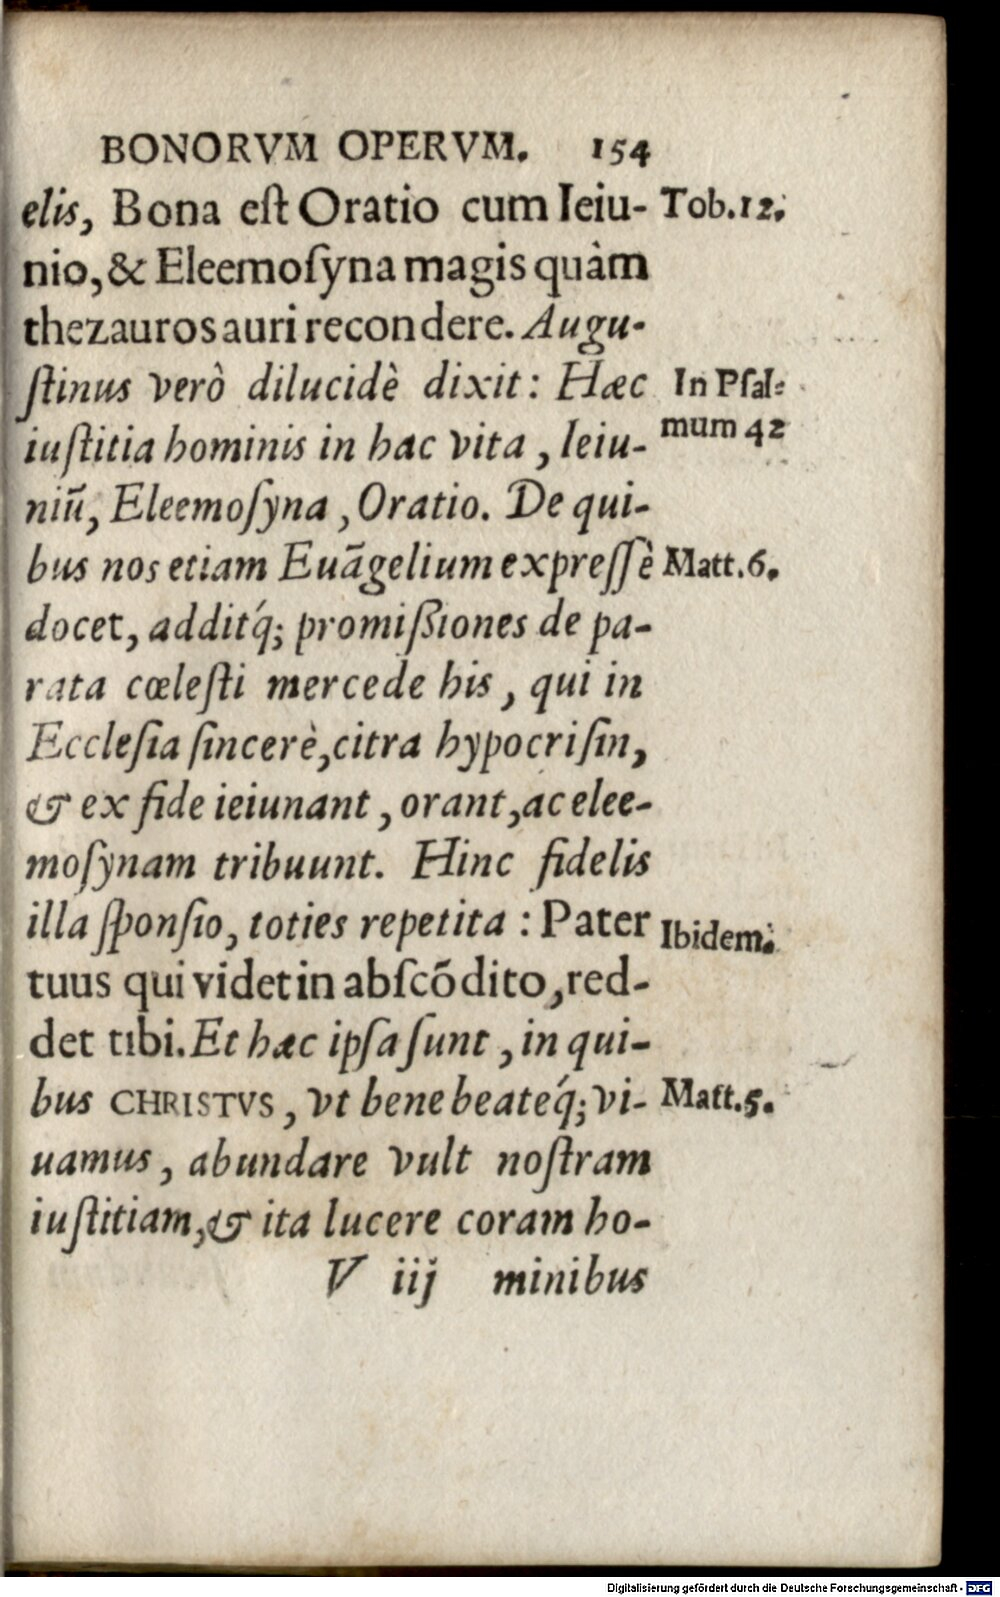 BONORVM OPERVM. 154
elis, Bona eſt Oratio cum Ieiu- Tob.12.
nio, & Eleemoſyna magis quàm
thezauros auri recondere. Augu-
ſtinus verò dilucidè dixit: Hæc In Pſal-
iuſtitia hominis in hac vita, Ieiu- mum 42
niū, Eleemoſyna, Oratio. De qui-
bus nos etiam Euãgelium expreſſè Matt.6.
docet, additq́; promiſsiones de pa-
rata cœleſti mercede his, qui in
Eccleſia ſincerè, citra hypocriſin,
& ex fide ieiunant, orant, ac elee-
moſynam tribuunt. Hinc fidelis
illa ſponſio, toties repetita: Pater Ibidem.
tuus qui videt in abſcõdito, red-
det tibi. Et hæc ipſa ſunt, in qui-
bus CHRISTVS, vt bene beateq́; vi- Matt.5.
uamus, abundare vult noſtram
iuſtitiam, & ita lucere coram ho-
V iij minibus
Digitalisierung gefördert durch die Deutsche Forschungsgemeinschaft - DFG